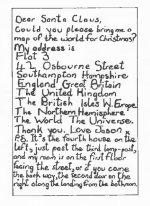 Dear Santa Claus,
Could you please bring me a
map of the world for Christmas?
My address is
Flat 3
42 Osbourne Street
Southampton Hampshire
England Great Britain
The United Kingdom
The British Isles W. Europe
The Northern Hemisphere
The World The Universe.
Thank you. Love Jason x
P.S. It's the fourth house on the
left, just past the third lamp-post,
and my room is on the first floor
facing the street, or if you come
the back way, the second door on the
right along the landing from the bathroom.